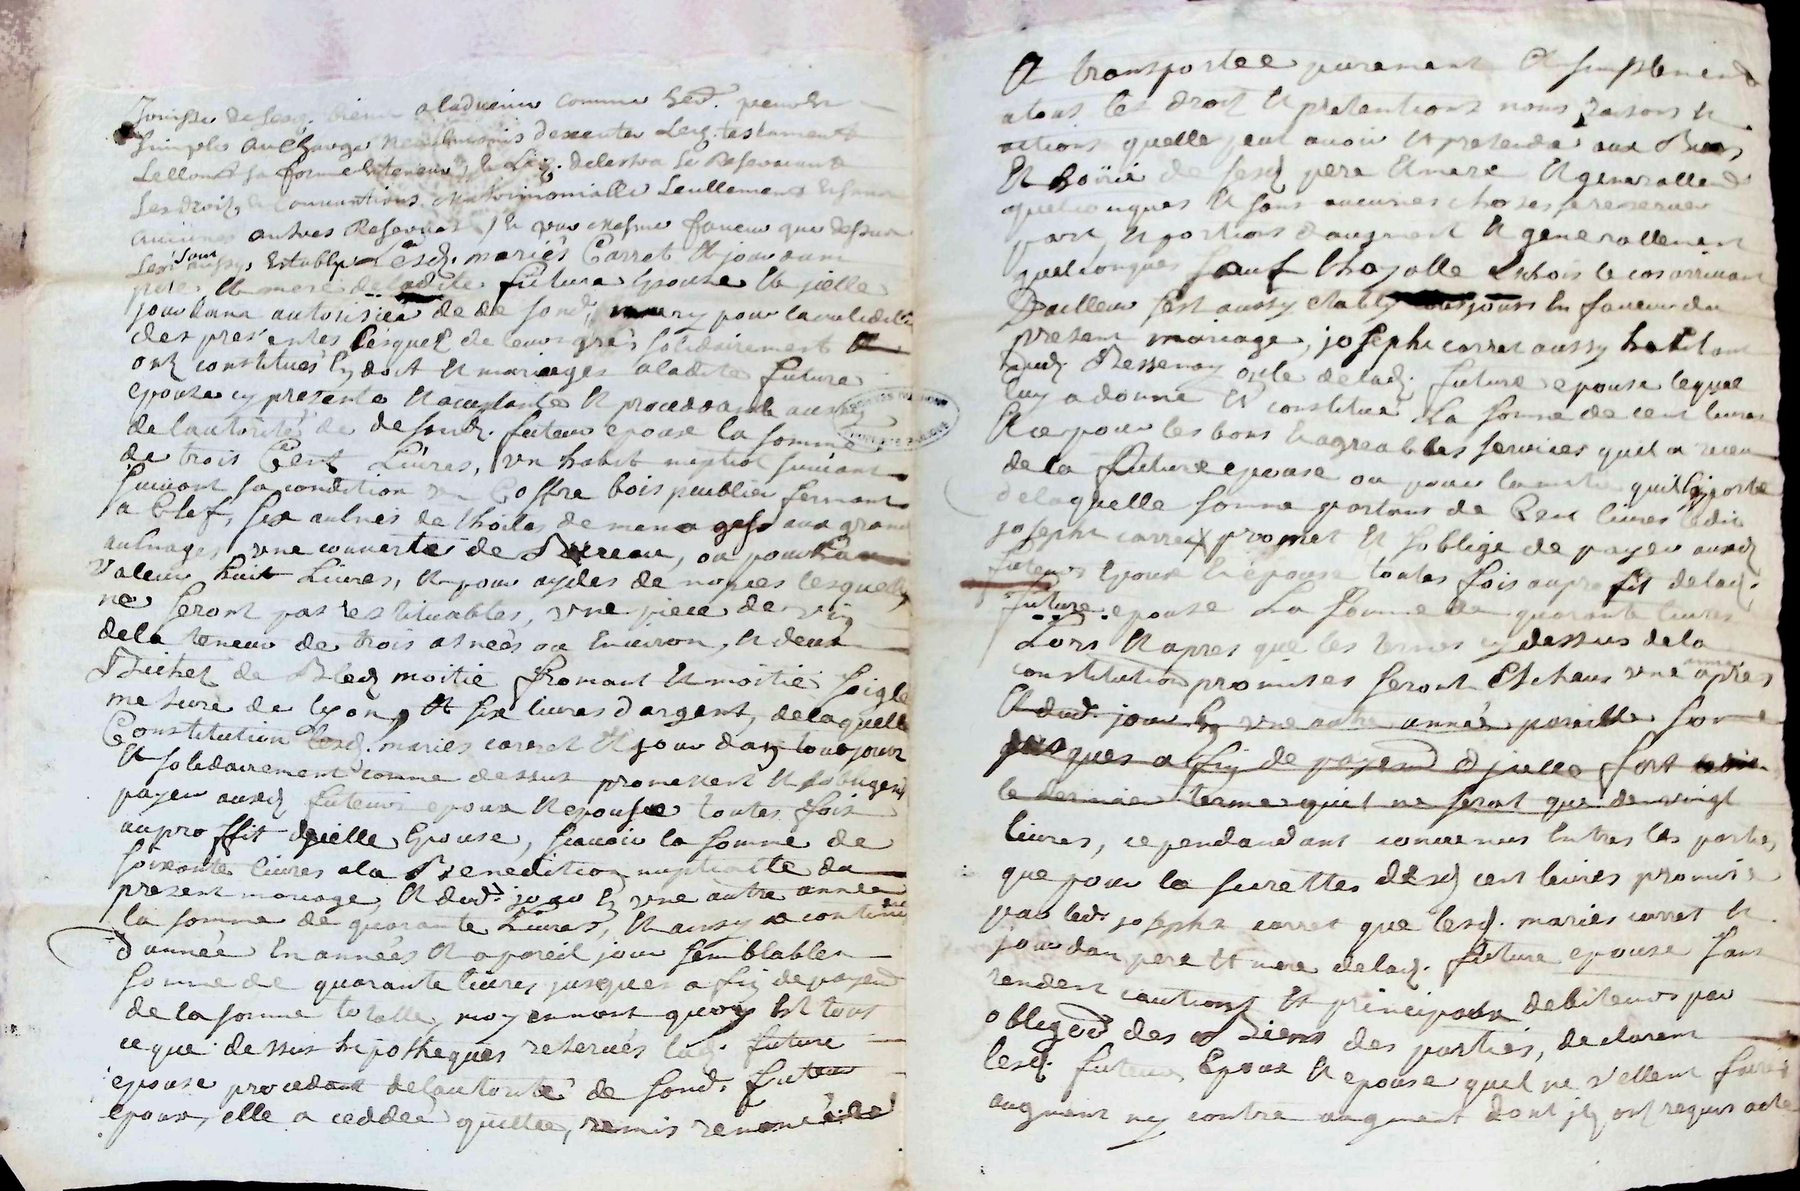 Jouir de sesd. biens aladvenir comme hed. premier
simples Aucharge Neantmoins dexecuter Led. testament
sellon sa forme Et teneur Se Reservant
ses droits de Conventions Matrimonialle seullement Et sans
aucunes autres Reserves / Et par mesme faveur que dessus
sont aussy Establys Lesd. mariés Carret Et jourdan
pere Et mere deladite future Epouse Et jcelle
jourdana autorisée de de sond. mary pour lavalidité
des presentes lesquels de leurs grés solidairement
ont constitués En doit Et mariages aladite future
epouse cy presente Et acceptante Et proceddante aussy
de lautorité de de sond. futeur epoux la somme
de trois Cent Livres, vn habit nuptial suivant
suivant sa condition vn Coffre bois peublier fermant
a Clef, six aulnes de thoiles de menages aux grand
aulnages, vne couverte de Bureau, ou pour La
valeur huit Livres, Et pour aydes de nopces lesquelles
ne seront pas restituables, vne piece de vin
dela teneur de trois asnées ou Environ, Et deux
Bichet de Bled moitié fromant Et moitié seigle
mesure de lyon, Et six livres dargent, delaquelle
Constitution lesd. mariés carret Et jourdan tousjours
Et solidairement comme dessus promettent Et sobligent
payer ausd. futeurs epoux Et epouse toutes fois
auproffit djcelle Epouse, scavoir la somme de
soixante livres ala Benediction nuptialle du
present mariage, Et dud. jour En vne autre année
la somme de quarante Livres, Et ainsy a continuer
dannée En années Et apareil jour semblables
somme de quarante livres jusques a fin de payemt
de la somme totalle, moyennant quoy Et tout
ce que dessus hipotheques reservés lad. future
epouse procedant delautorité de sond. futeur
epoux, elle a ceddée quittée, remis renoncée
Et transportée purement Et simplement
atous les droit Et pretentions noms Raisons Et
actions quelle peut avoir Et pretendre aux Biens
Et hoirie de sesd. pere Et mere Et generallemt
quelconques Et sans aucunes choses se reserver
part, Et portions daugment Et generallement
quelconques sauf Loyalle Eschois le cas arrivant
Dailleur sest aussy Estably tousjours En faveur du
present mariage, joseph carret aussy habitant
dud. Bessenay oncle delad. future epouse lequel
luy a donné Et constitué La somme de cent livres
Et ce pour les bons Et agreables services quil a receu
de la future epouse ou pour lamitié quil luy porte
delaquelle somme partant de Cent livres ledit
joseph carret promet Et soblige de payer ausd.
futeurs Epoux Et epouse toutes fois auproffit delad.
future epouse La somme de quarante livres
Lors Et apres que les termes cy dessus dela
constitution promises seront Escheus vne année apres
Et dud. jour En vne autre année pareille somme
jusques a fin de payemt djcelle sort
le dernier terme quil ne serat que de vingt
livres, cependandant convenus Entres les parties
que pour la surettes desd. cent livres promis
par led. joseph carret que lesd. mariés carret Et
jourdan pere Et mere delad. future epouse sans
rendent cautions Et principaux debiteurs par
obligaon des Biens des parties, declarent
lesd. futeurs Epoux Et epouse quil ne veullent faire
augment ny contre augment dont jls ont requis acte